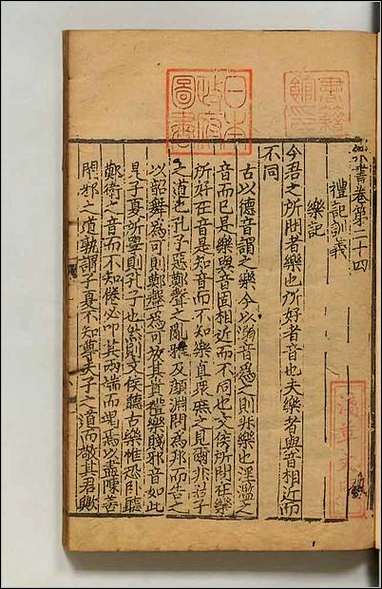 樂書卷第二十四
禮記訓義
樂記
今君之所問者樂也所好者音也夫樂者與音相近而
不同
古以德音謂之樂今以溺音爲之則非樂也淫濫之
音而已是樂與音固相近而不同也文侯所問在樂
所好在音是知音而不知樂直衆庶之見爾非君子
之道也孔子惡鄭聲之亂雅及顔淵問爲邦而告之
以韶舞爲可則鄭聲爲可放其貴禮樂賤邪音如此
是子夏所學則孔子也然則文侯聽古樂惟恐卧聽
鄭衛之音而不知倦必叩其兩端而竭焉以盡陳善
閉邪之道孰謂子夏不知尊夫子之道而故其君歟
日本
政府
圖書